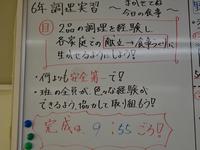 6年 調理実習 ~まかせてね 今日の食事~
目 2品の調理を経験し
各家庭での献立→食事づくりに
生かせるようにしよう!
・何よりも安全第一で!!
・班の全員が、色々な経験が
できるよう、協力して取り組もう!
完成は、9:55ごろ!